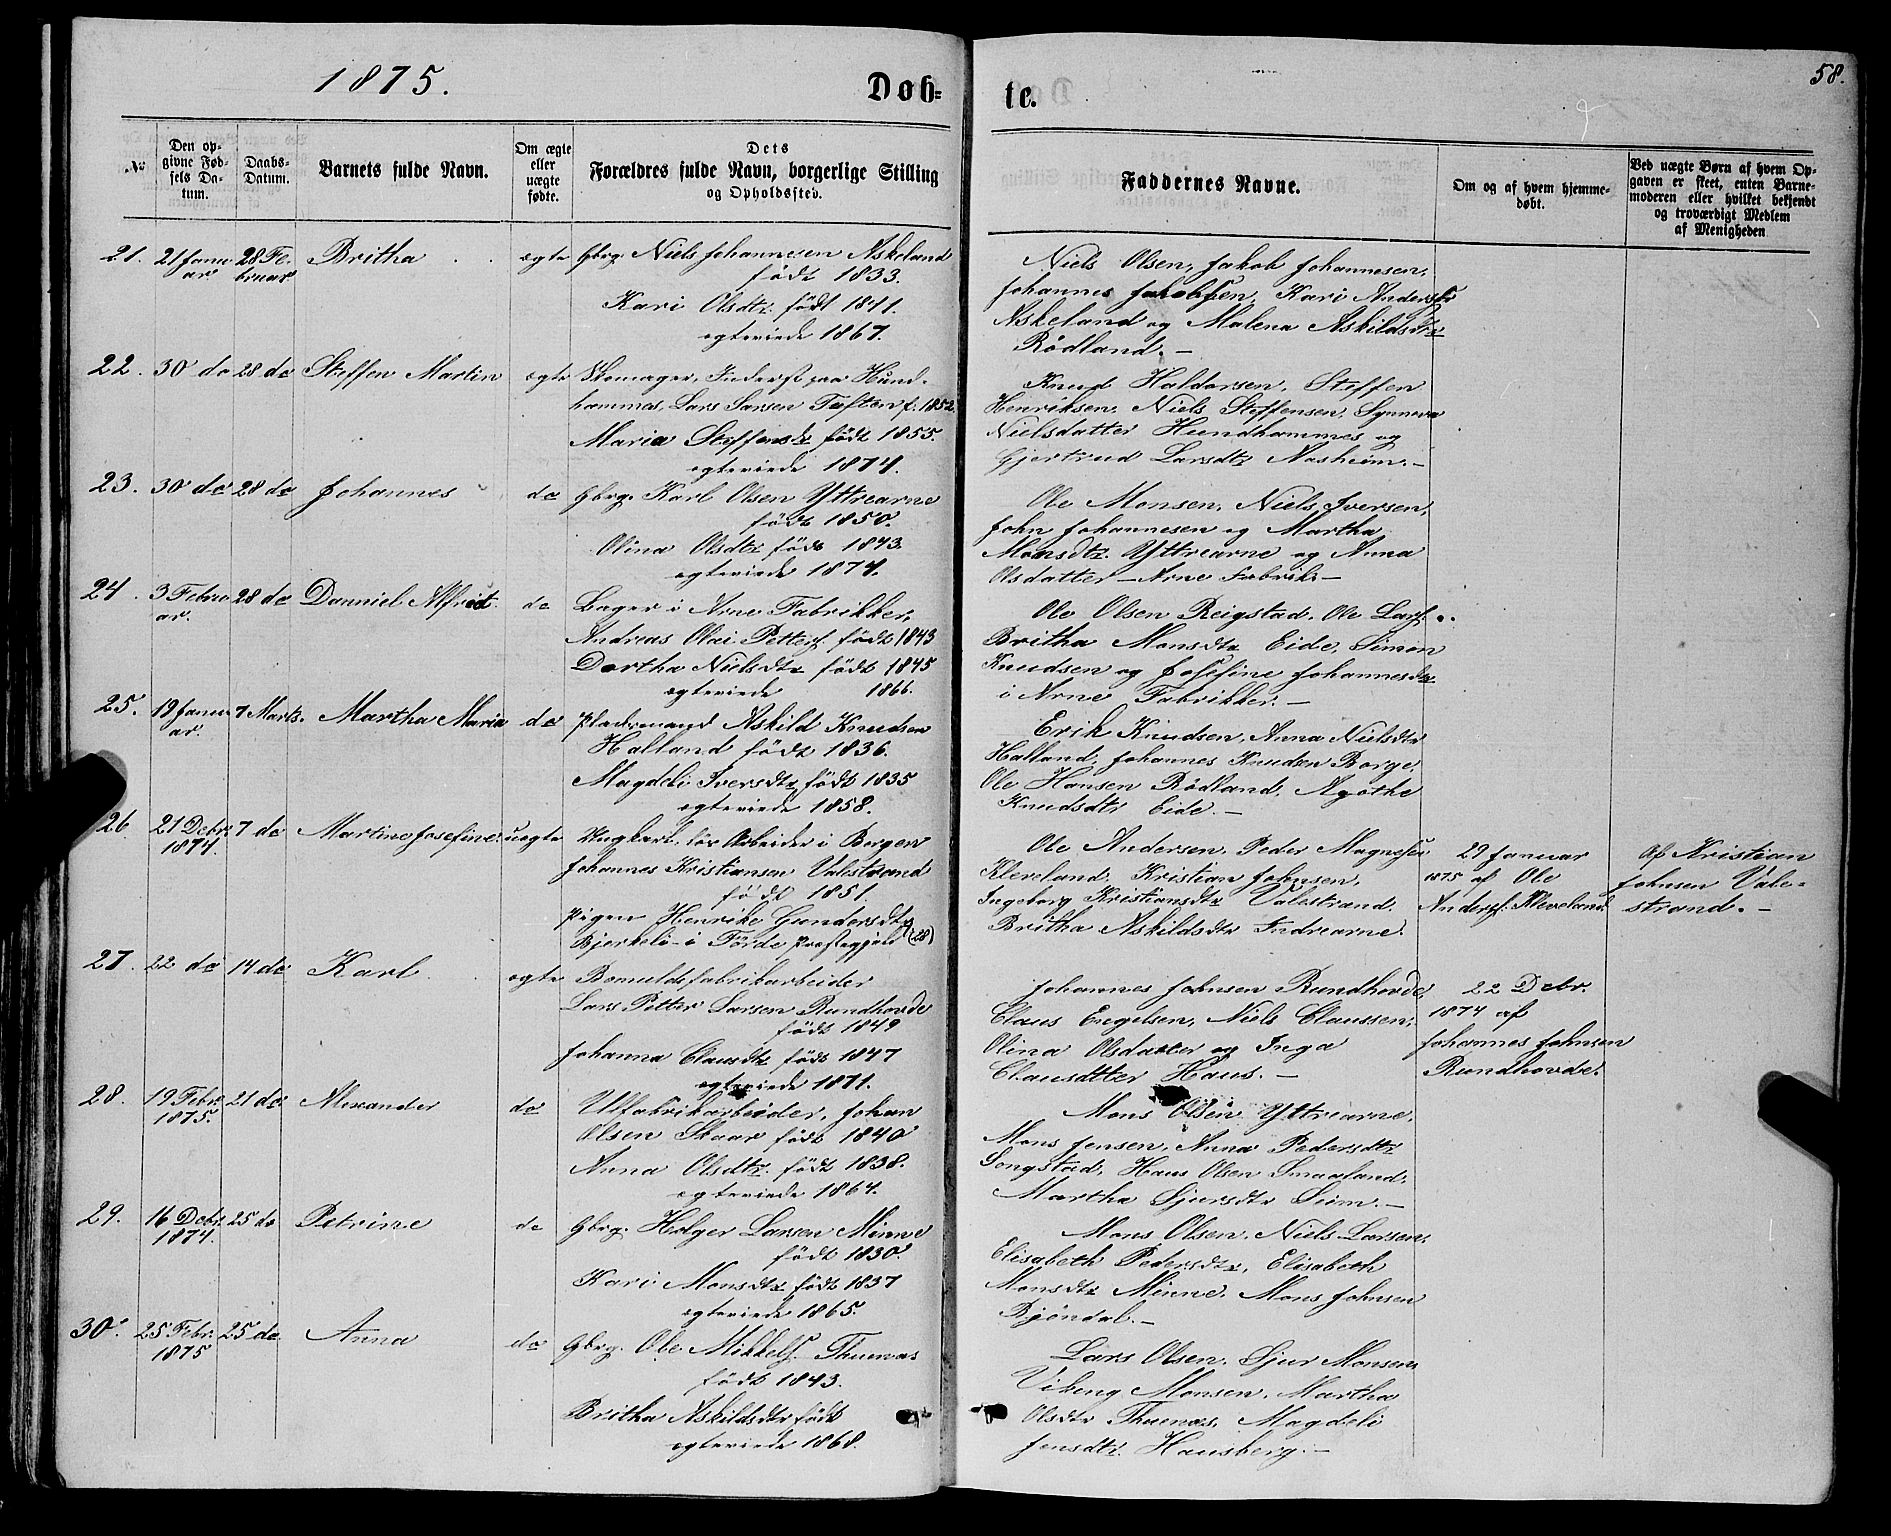 1875.
Døb=
te.
58.
No
Den opgivne Fødsels Datum.
Daabs-Datum.
Barnets fulde Navn.
Om ægte eller uægte fødte.
Dets
Forældres fulde Navn, borgerlige Stilling
og Opholdssted.
Faddernes Navne.
Om og af hvem hjemmedøbt.
Ved uægte Børn af hvem Opgaven er skeet, enten Barnemoderen eller hvilket bekjendt og troværdigt Medlem af Menigheden
21. 21 Januar 28 Februar Britha ægte Gbrg. Niels Johannesen Askeland
født 1833.
Kari Olsdtr. født 1841.
ægteviede 1867.
Niels Olsen, Jakob Johannesen,
Johannes Jakobsen, Kari Andersdtr
Askeland og Malena Askildsdtr
Rødland. —
22. 30 do 28 do Steffen Martin ægte Skomager, Inderst paa Hund-
hammer, Lars Larsen Tuften f. 1852.
Maria Steffensdtr født 1855.
ægteviede 1874.
Knud Haldorsen, Steffen
Henriksen, Niels Steffensen, Synneva
Nielsdatter Hundhammer og
Gjertrud Larsdtr Aasheim. —
23. 30 do 28 do Johannes do Gbrg. Karl Olsen Yttrearne
født 1850.
Olina Olsdtr født 1843.
ægteviede 1874.
Ole Monsen, Niels Iversen,
John Johannesen og Martha
Monsdtr. Yttrearne og Anna
Olsdatter — Arne Fabrik —
24. 3 Februar. 28 do Danniel Alfred. do Bager i Arne Fabrikker,
Andreas Olai Petters. født 1843
Dortha Nielsdtr født 1845
ægteviede 1866.
Ole Olsen Reigstad, Ole Lars.
Britha Monsdtr Eide, Simon
Knudsen og Josefine Johannesdtr
i Arne Fabrikker. —
25. 19 Januar. 7 Marts. Martha Maria do Pladsmand Askild Knudsen
Halland født 1836.
Magdeli Iversdtr født 1835
ægteviede 1858.
Erik Knudsen, Anna Nielsdtr
Halland, Johannes Knudsen Borge,
Ole Hansen Rødland, Agathe
Knudsdtr Eide. —
26. 21 Debr. 1874. 7 do Martine Josefine. uægte Ungkarl, løs Arbeider i Bergen
Johannes Kristiansen Valestrand
født 1851.
Pigen Henrike Gundersdtr
Bjerkeli i Førde Præstegjeld (28)
Ole Andersen, Peder Magnesen
Kleveland, Kristian Johnsen,
Ingeborg Kristiansdtr Valestrand.
Britha Askildsdtr Indrearne.
29 Januar
1875 af Ole
Anders. Kleveland.
af Kristian
Johnsen Vale-
strand. —
27. 22 do 14 do Karl ægte Bomuldsfabrikarbeider
Lars Petter Larsen Rundhovde
født 1849
Johanna Clausdtr født 1847
ægteviede 1871.
Johannes Johnsen Rundhovde,
Claus Engelsen, Niels Claussen,
Olina Olsdatter og Inga
Clausdtter Haus. —
22 Debr.
1874 af
Johannes Johnsen
Rundhovde.
28. 19 Febr. 1875. 21 do Alexander do Uldfabrikarbeider, Johan
Olsen Skaar født 1840
Anna Olsdtr. født 1838.
ægteviede 1864.
Mons Olsen Yttrearne,
Mons Jensen, Anna Pedersdtr
Songstad, Hans Olsen Smaaland,
Martha Sjursdtr Seim. —
29. 16 Debr. 1874. 25 do Petrine do Gbrg. Holger Larsen Minne
født 1830.
Kari Monsdtr født 1837
ægteviede 1865.
Mons Olsen, Niels Larsen,
Elisabeth Pedersdtr, Elisabeth
Monsdtr Minne, Mons Johnsen
Bjøndal. —
30. 25 Febr. 1875 25 do Anna do Gbrg. Ole Mikkels. Thuenæs
født 1843.
Britha Askildsdtr født
ægteviede 1868.
Lars Olsen, Sjur Monsen
Viking Monsen, Martha
Olsdtr Thuenæs, Magdeli
Jensdtr. Hausberg. —